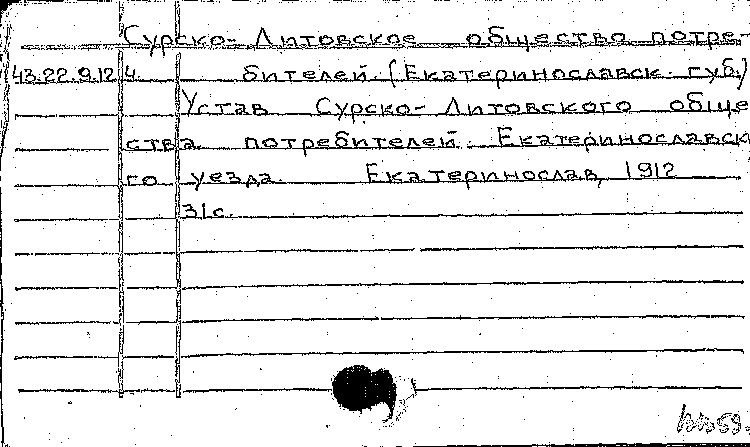 Сурско-Литовское общество потре-
43.22.9.12 4. бителей. (Екатеринославск. губ.)
Устав Сурско-Литовского обще
ства потребителей. Екатеринославск
го уезда. Екатеринослав, 1912
31с.